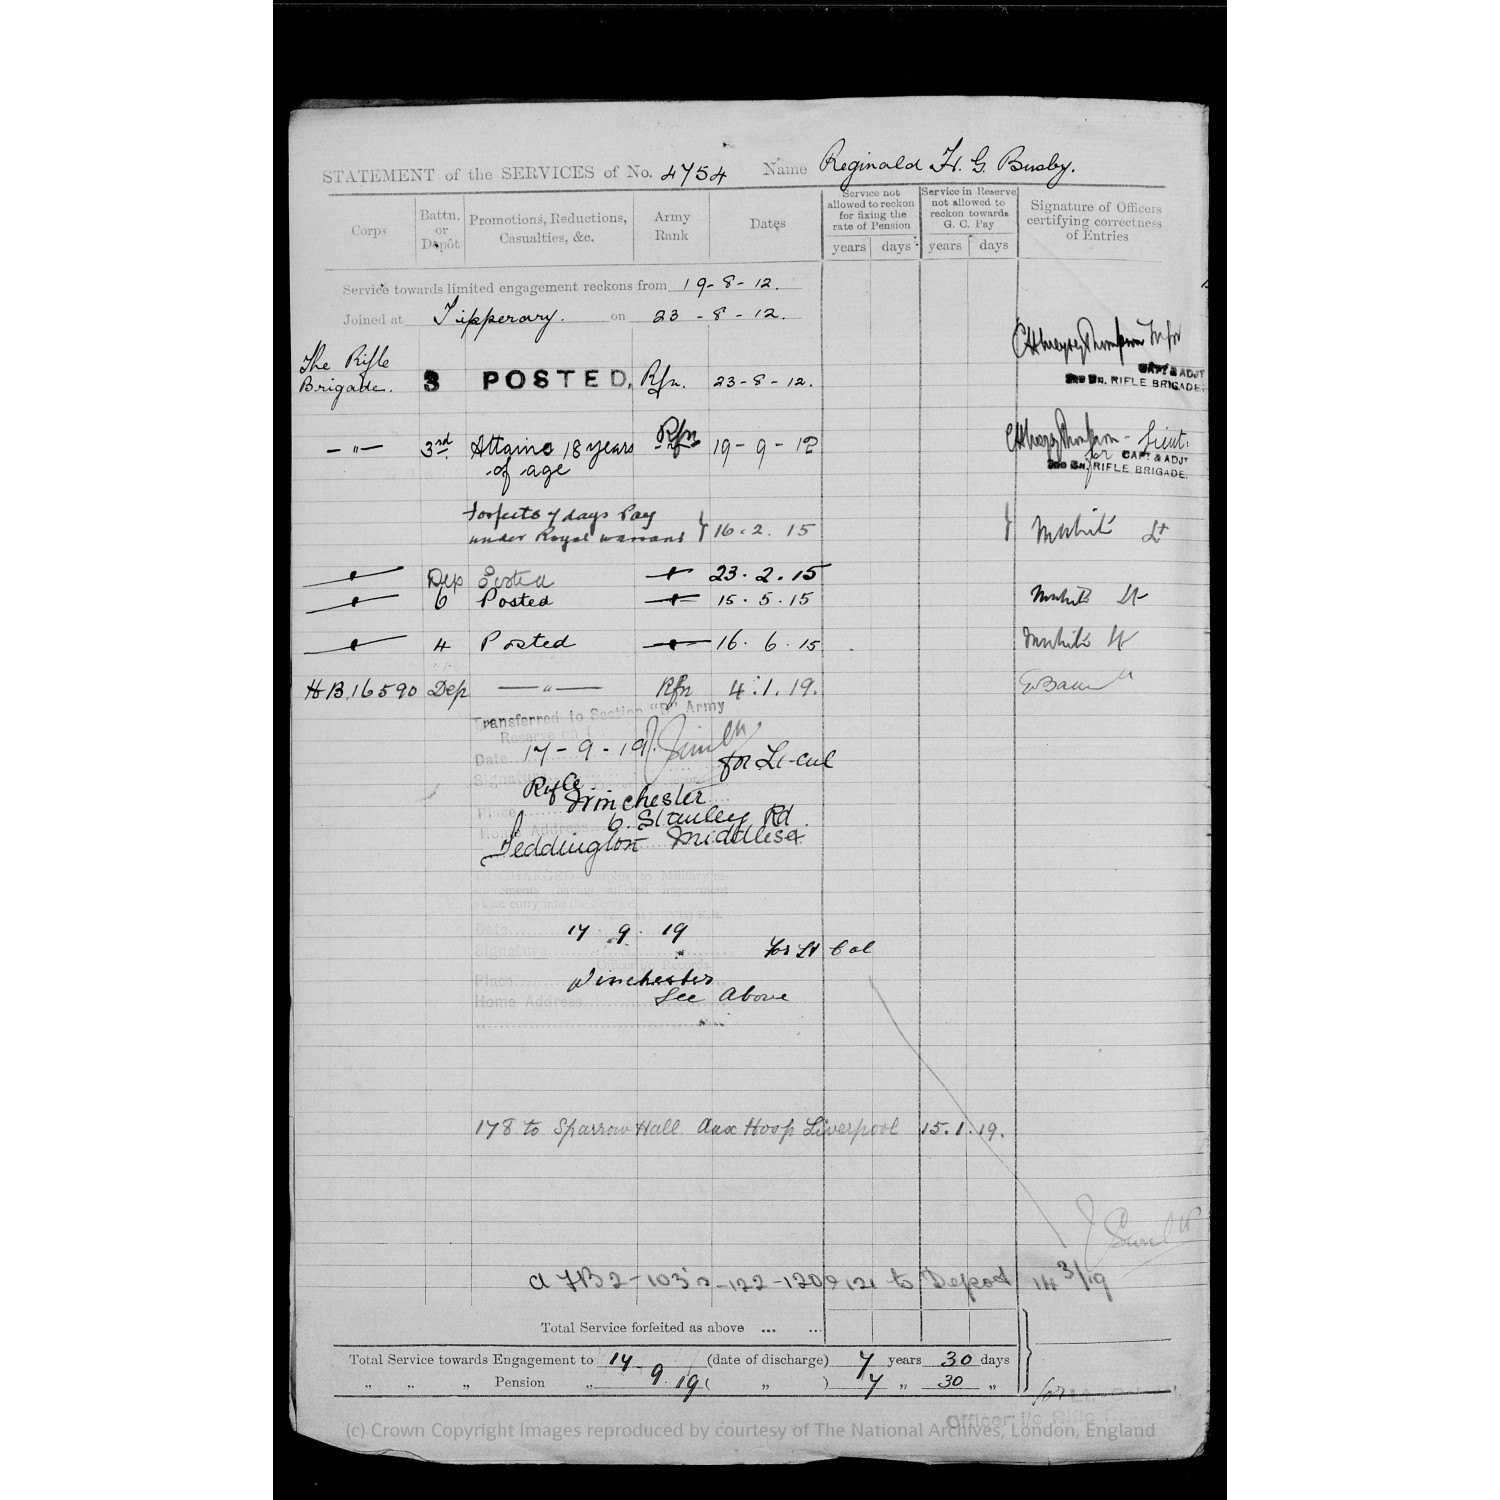 STATEMENT of the SERVICES of No. 4754 Name Reginald H. G. Busby.
Corps
Battn. or Depôt
Promotions, Reductions, Casualties, &c.
Army Rank
Dates
Service not allowed to reckon for fixing the rate of Pension
years days
Service in Reserve not allowed to reckon towards G. C. Pay
years days
Signature of Officers certifying correctness of Entries
Service towards limited engagement reckons from 19-8-12.
Joined at Tipperary. on 23-8-12.
The Rifle
Brigade. 3 POSTED, Rfn. 23-8-12.
CAPT & ADJT
3RD BN. RIFLE BRIGADE.
— " — 3rd Attains 18 years Rfn 19-9-12 Lieut.
of age
for CAPT & ADJT
3RD BN. RIFLE BRIGADE.
Forfeits 7 days Pay
under Royal warrant } 16.2.15 } Lt
Dep Posted 23.2.15
6 Posted 15.5.15 Lt
4 Posted 16.6.15 Lt
HB.16590 Dep — " — Rfn 4.1.19.
Transferred to Section "B" Army
Reserve on
Date 17-9-19. for Lt-Col
Signature
Rifle
Place Winchester
Home Address 6. Stanley Rd.
Teddington Middlesex
DISCHARGED surplus to Military re-
quirements (having suffered impairment
since entry into the Service)
Date 17.9.19
Signature for Lt Col
Place Winchester
Home Address See Above
178 to Sparrow Hall Aux Hosp Liverpool 15.1.19.
to Depot 14/3/19
Total Service forfeited as above ... ...
Total Service towards Engagement to 17-9-19 (date of discharge) 7 years 30 days
„ „ „ Pension „ ( „ ) 7 „ 30 „
for
Officer i/c Rifle
(c) Crown Copyright Images reproduced by courtesy of The National Archives, London, England